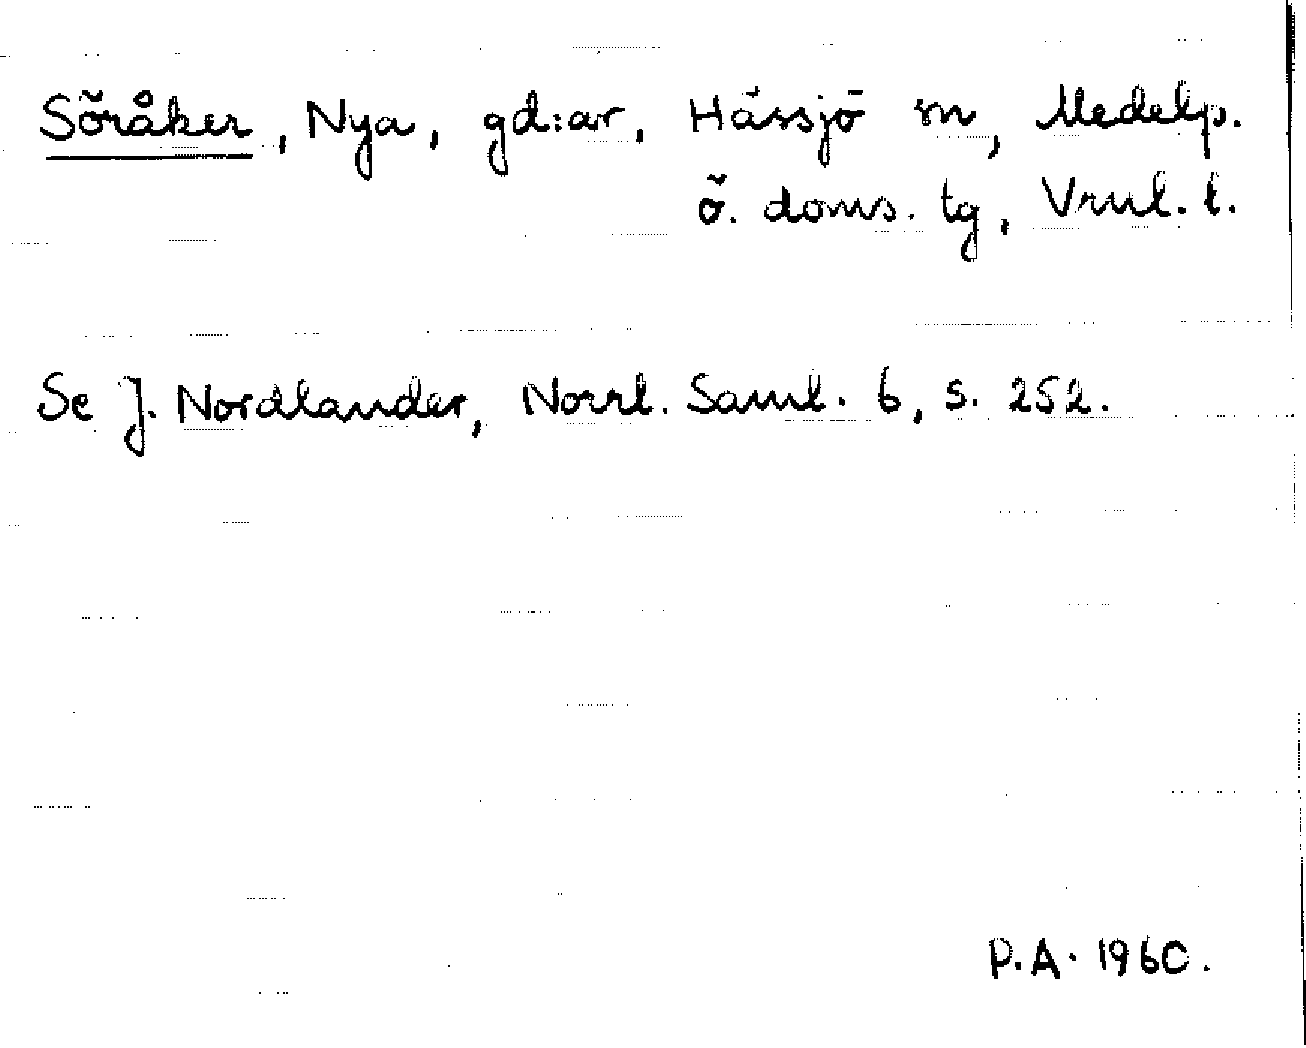 Söråker, Nya, gd:ar, Hässjö sn, Medelp.
ö. doms. tg, Vrnl. l.
Se J. Nordlander, Norrl. Saml. 6, s. 252.
P.A. 1960.